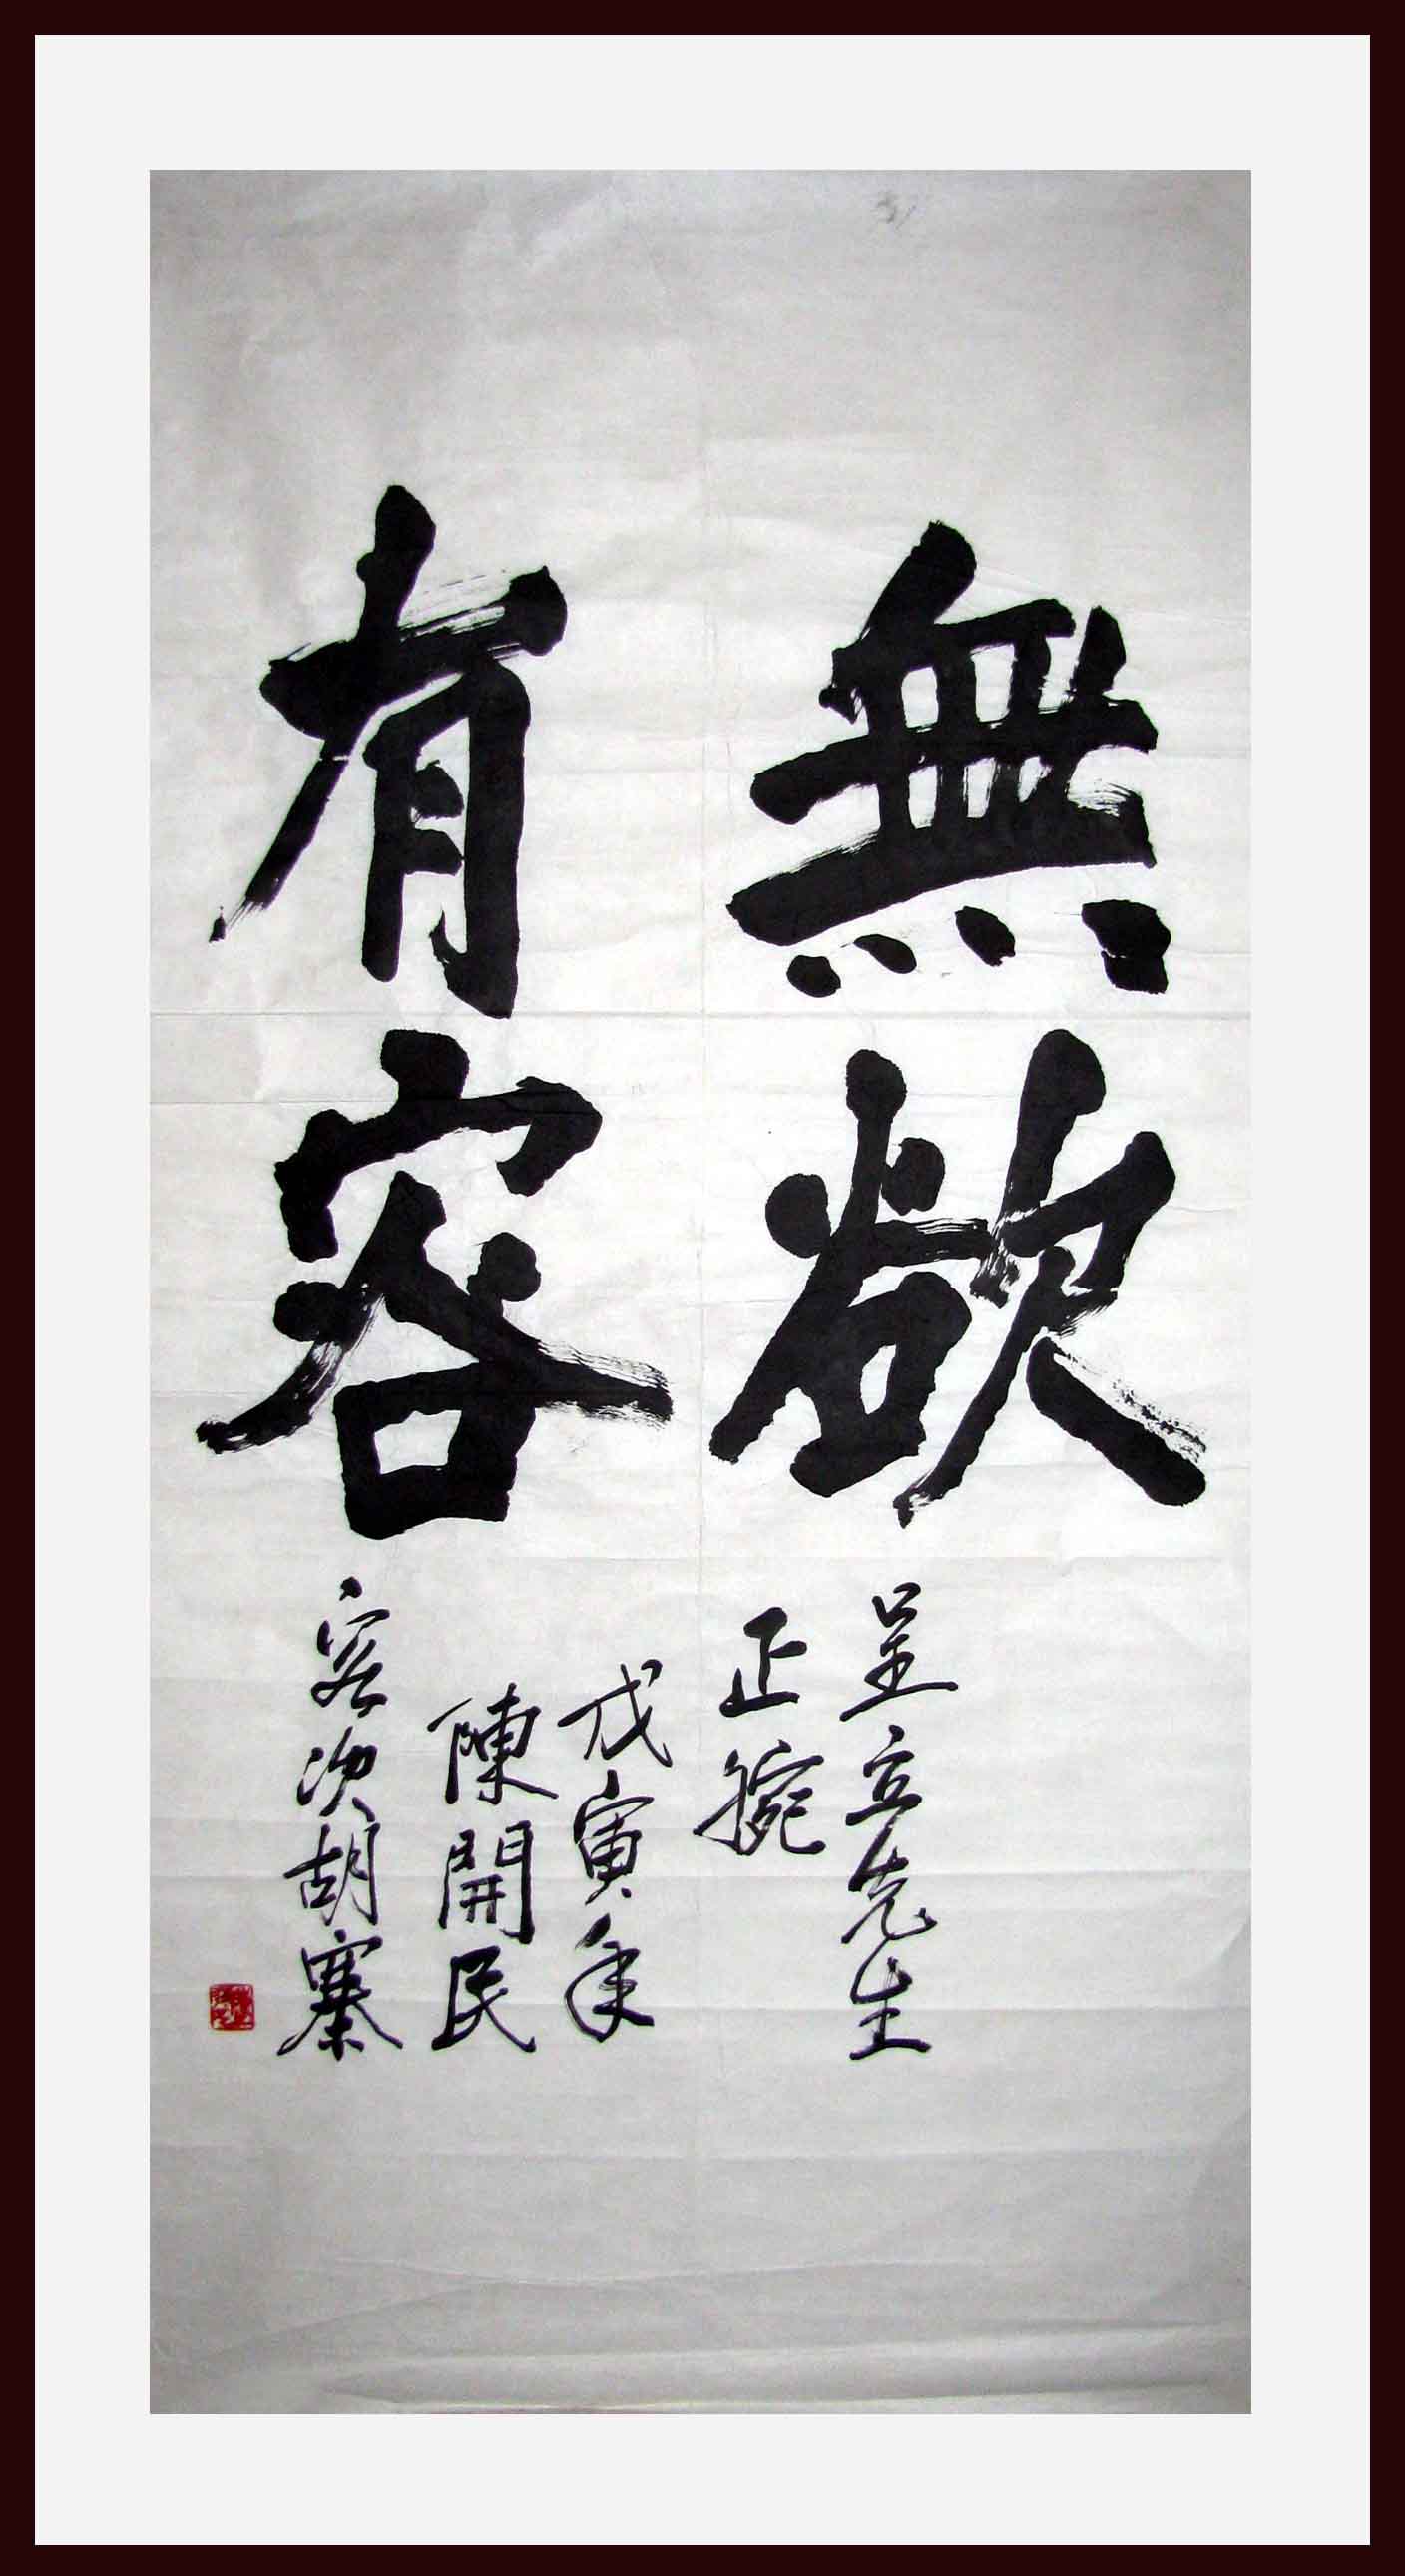 無欲
有容
呈立先生
正腕
戊寅年
陳開民
客次胡寨